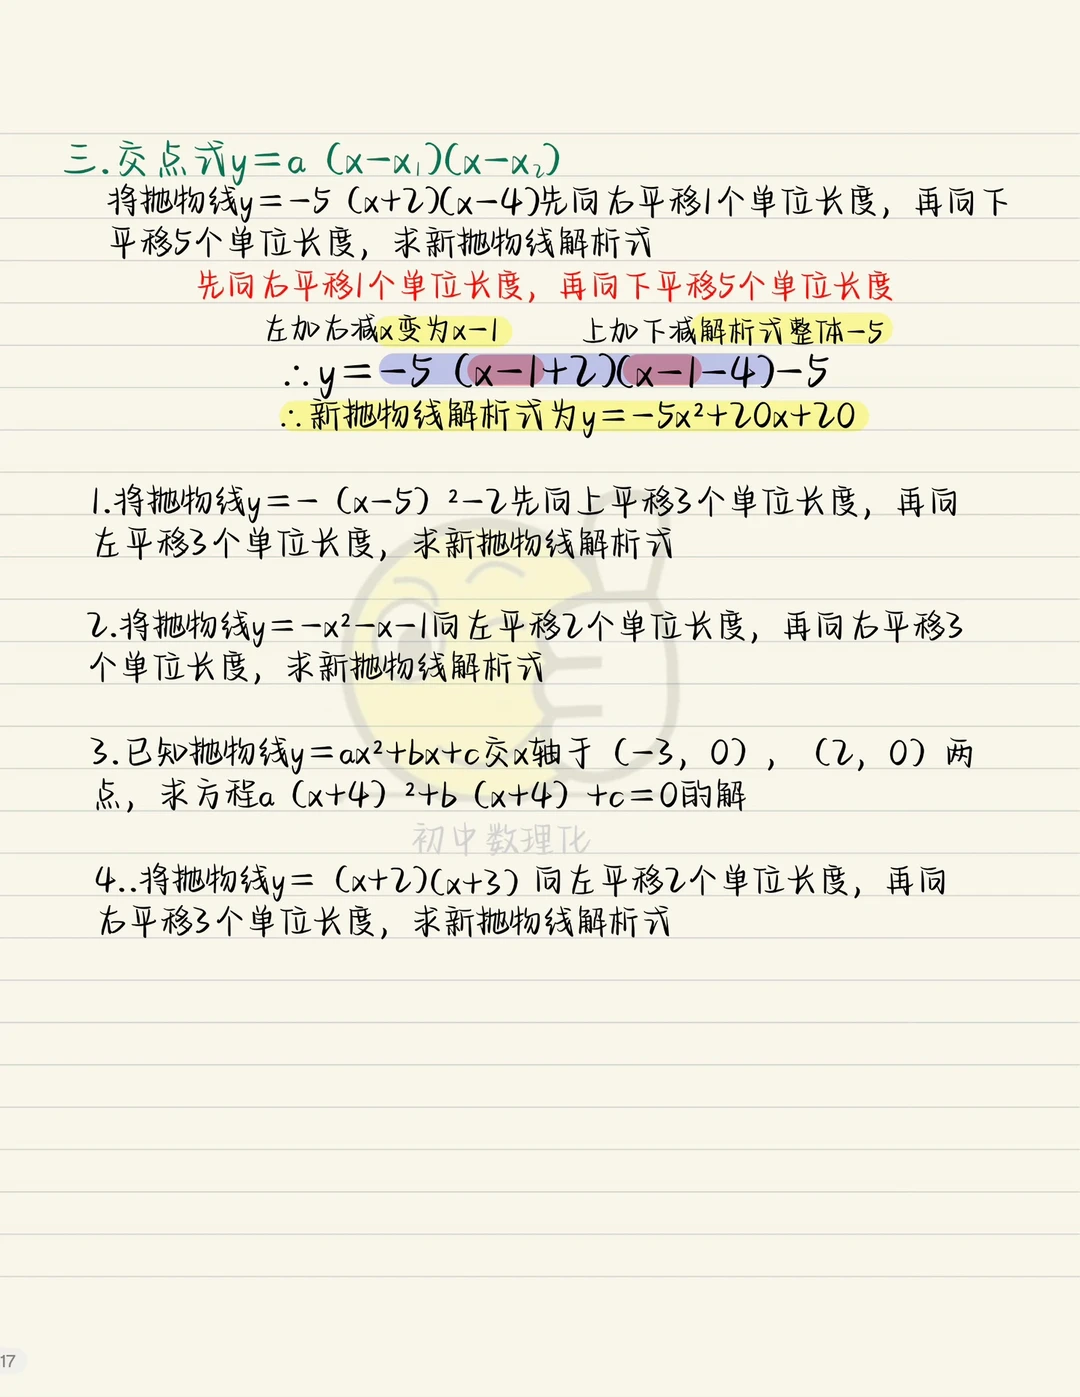 三.交点式y=a（x-x₁)(x-x₂)
将抛物线y=-5（x+2)(x-4)先向右平移1个单位长度，再向下
平移5个单位长度，求新抛物线解析式
先向右平移1个单位长度，再向下平移5个单位长度
左加右减x变为x-1 上加下减解析式整体-5
∴y=-5（x-1+2)(x-1-4)-5
∴新抛物线解析式为y=-5x²+20x+20
1.将抛物线y=-（x-5）²-2先向上平移3个单位长度，再向
左平移3个单位长度，求新抛物线解析式
2.将抛物线y=-x²-x-1向左平移2个单位长度，再向右平移3
个单位长度，求新抛物线解析式
3.已知抛物线y=ax²+bx+c交x轴于（-3，0），（2，0）两
点，求方程a（x+4）²+b（x+4）+c=0的解
初中数理化
4..将抛物线y=（x+2)(x+3）向左平移2个单位长度，再向
右平移3个单位长度，求新抛物线解析式
17